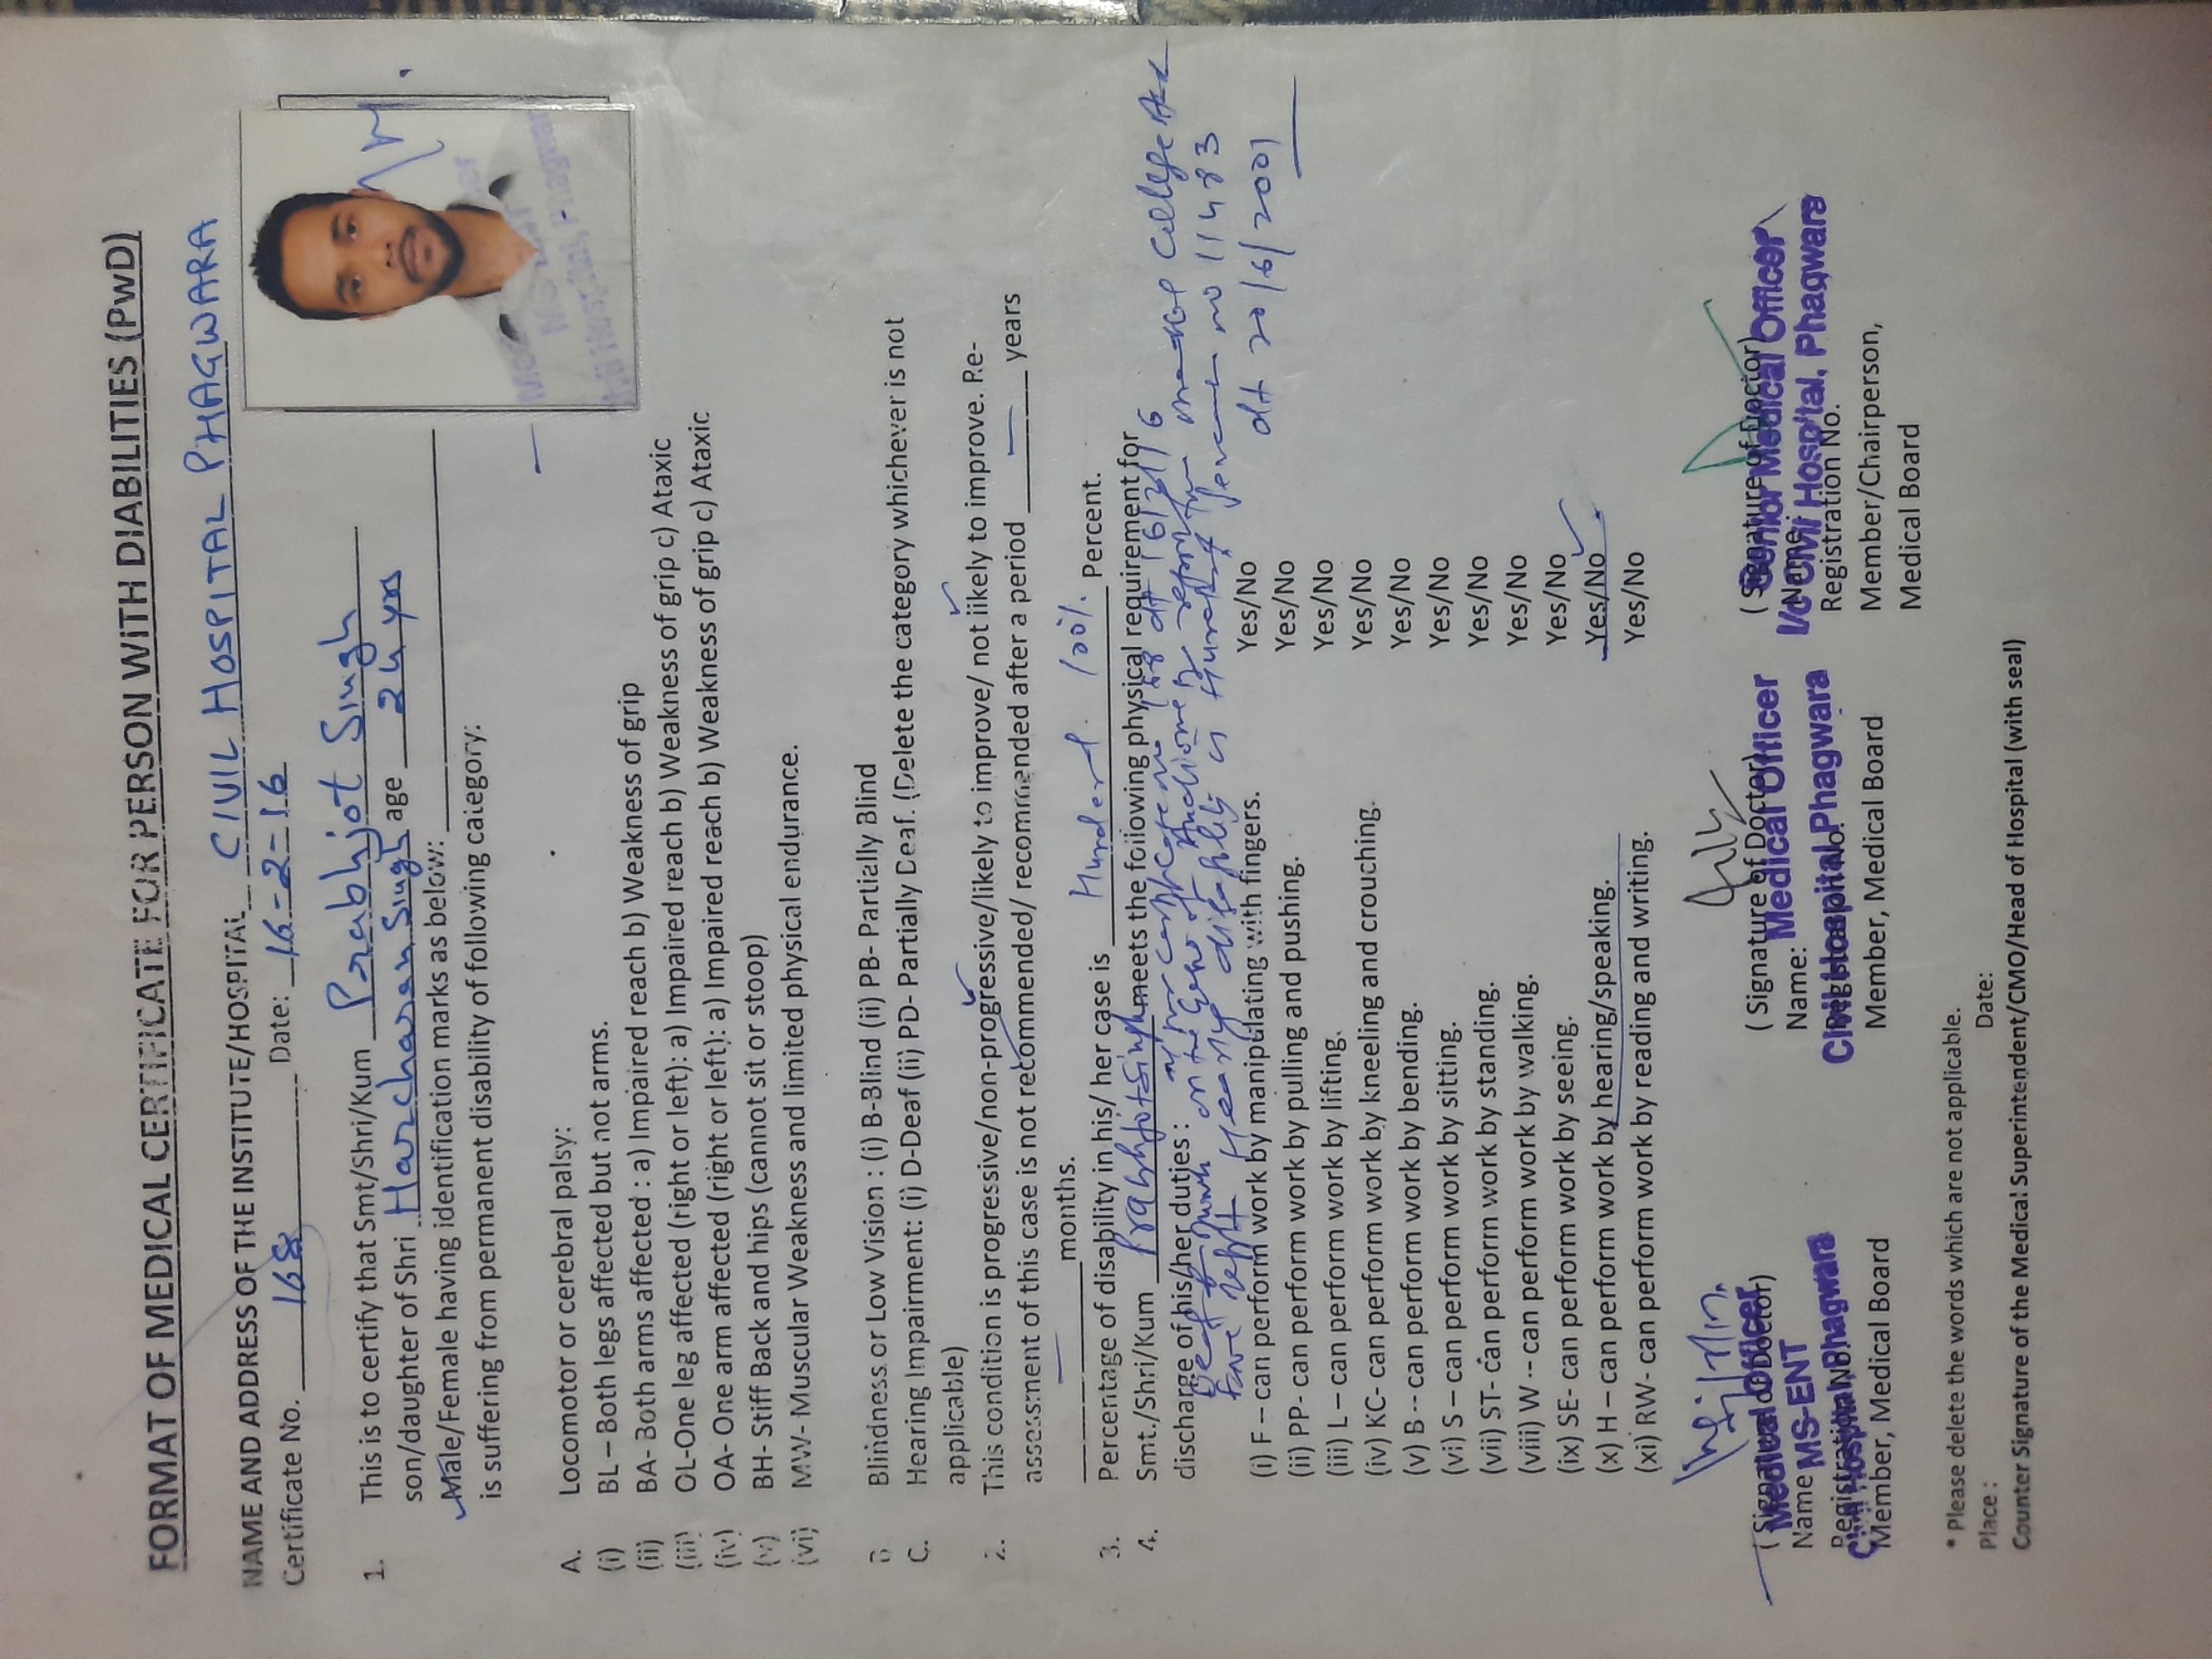 FORMAT OF MEDICAL CERTIFICATE FOR PERSON WITH DIABILITIES (PwD)
NAME AND ADDRESS OF THE INSTITUTE/HOSPITAL CIVIL HOSPITAL PHAGWARA
Certificate No. 168 Date: 16-2-16
1. This is to certify that Smt/Shri/Kum Prabhjot Singh
son/daughter of Shri Harcharan Singh age 24 yrs
Male/Female having identification marks as below:
is suffering from permanent disability of following category:
A. Locomotor or cerebral palsy:
(i) BL – Both legs affected but not arms.
(ii) BA- Both arms affected : a) Impaired reach b) Weakness of grip
(iii) OL-One leg affected (right or left): a) Impaired reach b) Weakness of grip c) Ataxic
(iv) OA- One arm affected (right or left): a) Impaired reach b) Weakness of grip c) Ataxic
(v) BH- Stiff Back and hips (cannot sit or stoop)
(vi) MW- Muscular Weakness and limited physical endurance.
B Blindness or Low Vision : (i) B-Blind (ii) PB- Partially Blind
C. Hearing Impairment: (i) D-Deaf (ii) PD- Partially Deaf. (Delete the category whichever is not
applicable)
2. This condition is progressive/non-progressive/likely to improve/ not likely to improve. Re-
assessment of this case is not recommended/ recommended after a period years
months.
3. Percentage of disability in his/ her case is Hundred 100%. Percent.
4. Smt./Shri/Kum Prabhjot Singh meets the following physical requirement for
discharge of his/her duties : 168 dt 16/2/16
medical College
Hearing disability is Hundred no 11483
dt 20/6/2001
(i) F – can perform work by manipulating with fingers. Yes/No
(ii) PP- can perform work by pulling and pushing. Yes/No
(iii) L – can perform work by lifting. Yes/No
(iv) KC- can perform work by kneeling and crouching. Yes/No
(v) B -- can perform work by bending. Yes/No
(vi) S – can perform work by sitting. Yes/No
(vii) ST- can perform work by standing. Yes/No
(viii) W -- can perform work by walking. Yes/No
(ix) SE- can perform work by seeing. Yes/No
(x) H – can perform work by hearing/speaking. Yes/No
(xi) RW- can perform work by reading and writing. Yes/No
(Signature of Doctor) ( Signature of Doctor) ( Signature of Doctor)
Medical Officer Medical Officer Senior Medical Officer
Name MS-ENT Name: Name:
Civil Hospital, Phagwara Civil Hospital, Phagwara I/c Civil Hospital, Phagwara
Registration No. Registration No. Registration No.
Member, Medical Board Member, Medical Board Member/Chairperson,
Medical Board
* Please delete the words which are not applicable.
Place : Date:
Counter Signature of the Medical Superintendent/CMO/Head of Hospital (with seal)